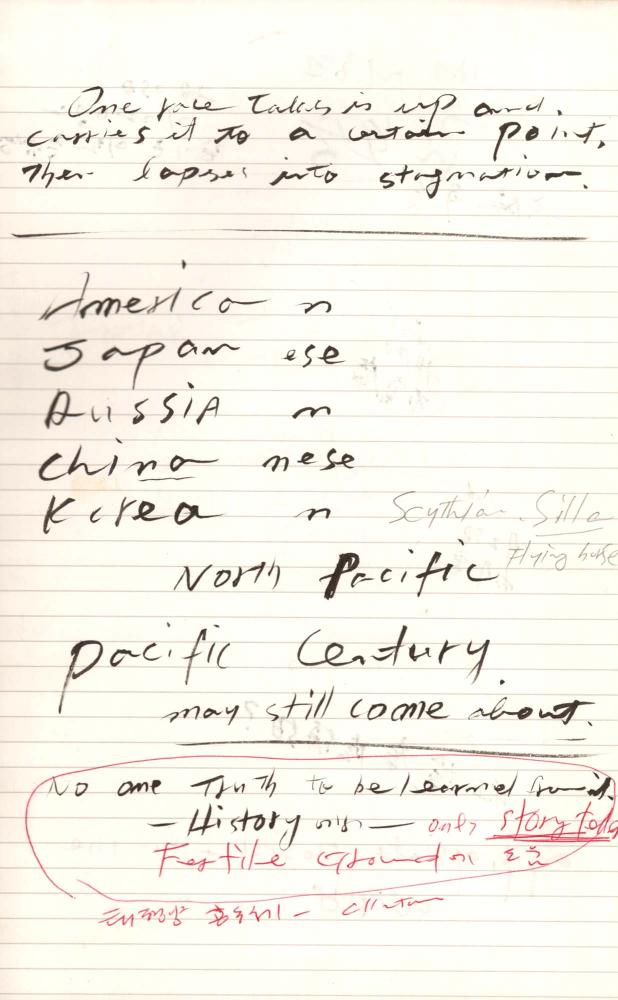 One race takes it up and,
carries it to a certain point,
then lapses into stagnation.
America n
Japan ese
Russia n
China nese
Korea n Scythian. Silla
Flying horse
North Pacific
Pacific Century.
may still come about.
No one Truth to be learned from it.
— History — only story told
Fertile Ground
태평양 공동체 — Clinton